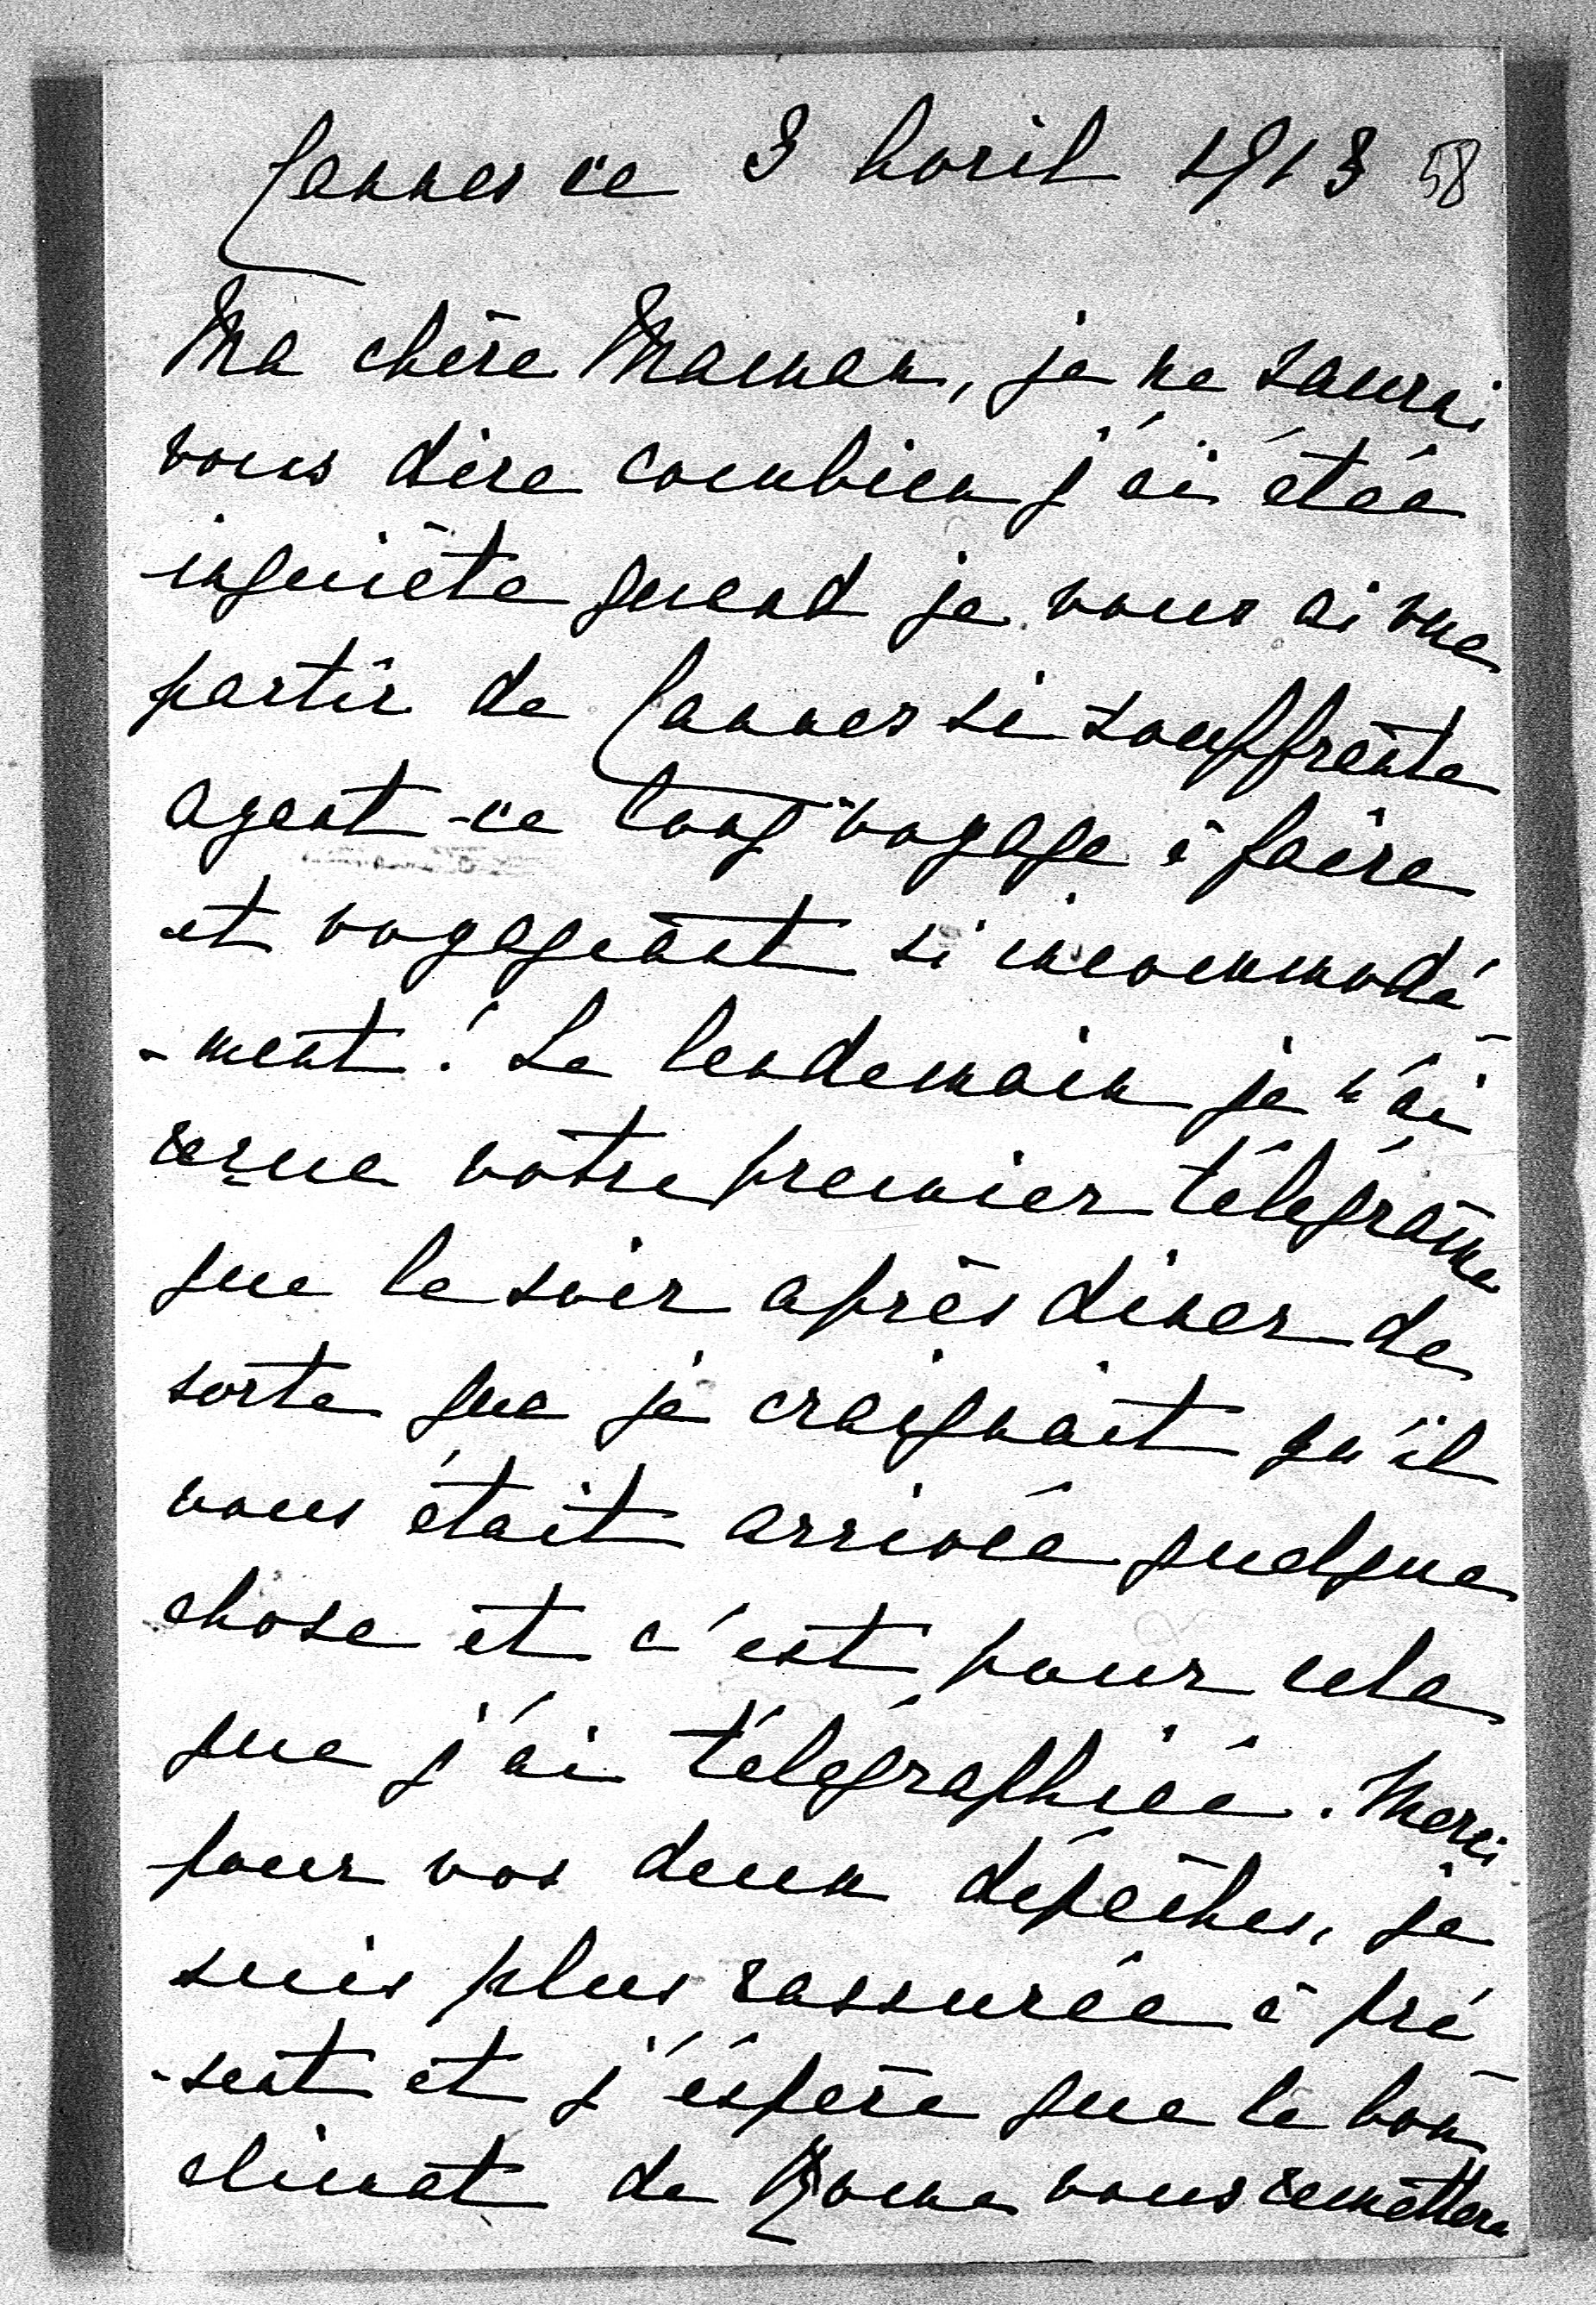 Cannes ce 3 Avril 1913 58
Ma chère Maman, je ne saurai
vous dire combien j'ai étée
inquiète quand je vous ai vue
partir de Cannes si souffrante
ayant ce long voyage à faire
et voyageant si incommodé-
-ment! Le lendemain je n'ai
reçue votre premier télégrame
que le soir après diner de
sorte que je craignait qu'il
vous était arrivée quelque
chose et c'est pour cela
que j'ai télégraphiée. Merci
pour vos deux dépêches, je
suis plus rassurée à pré-
-sent et j'éspère que le bon
climat de Rome vous remettera